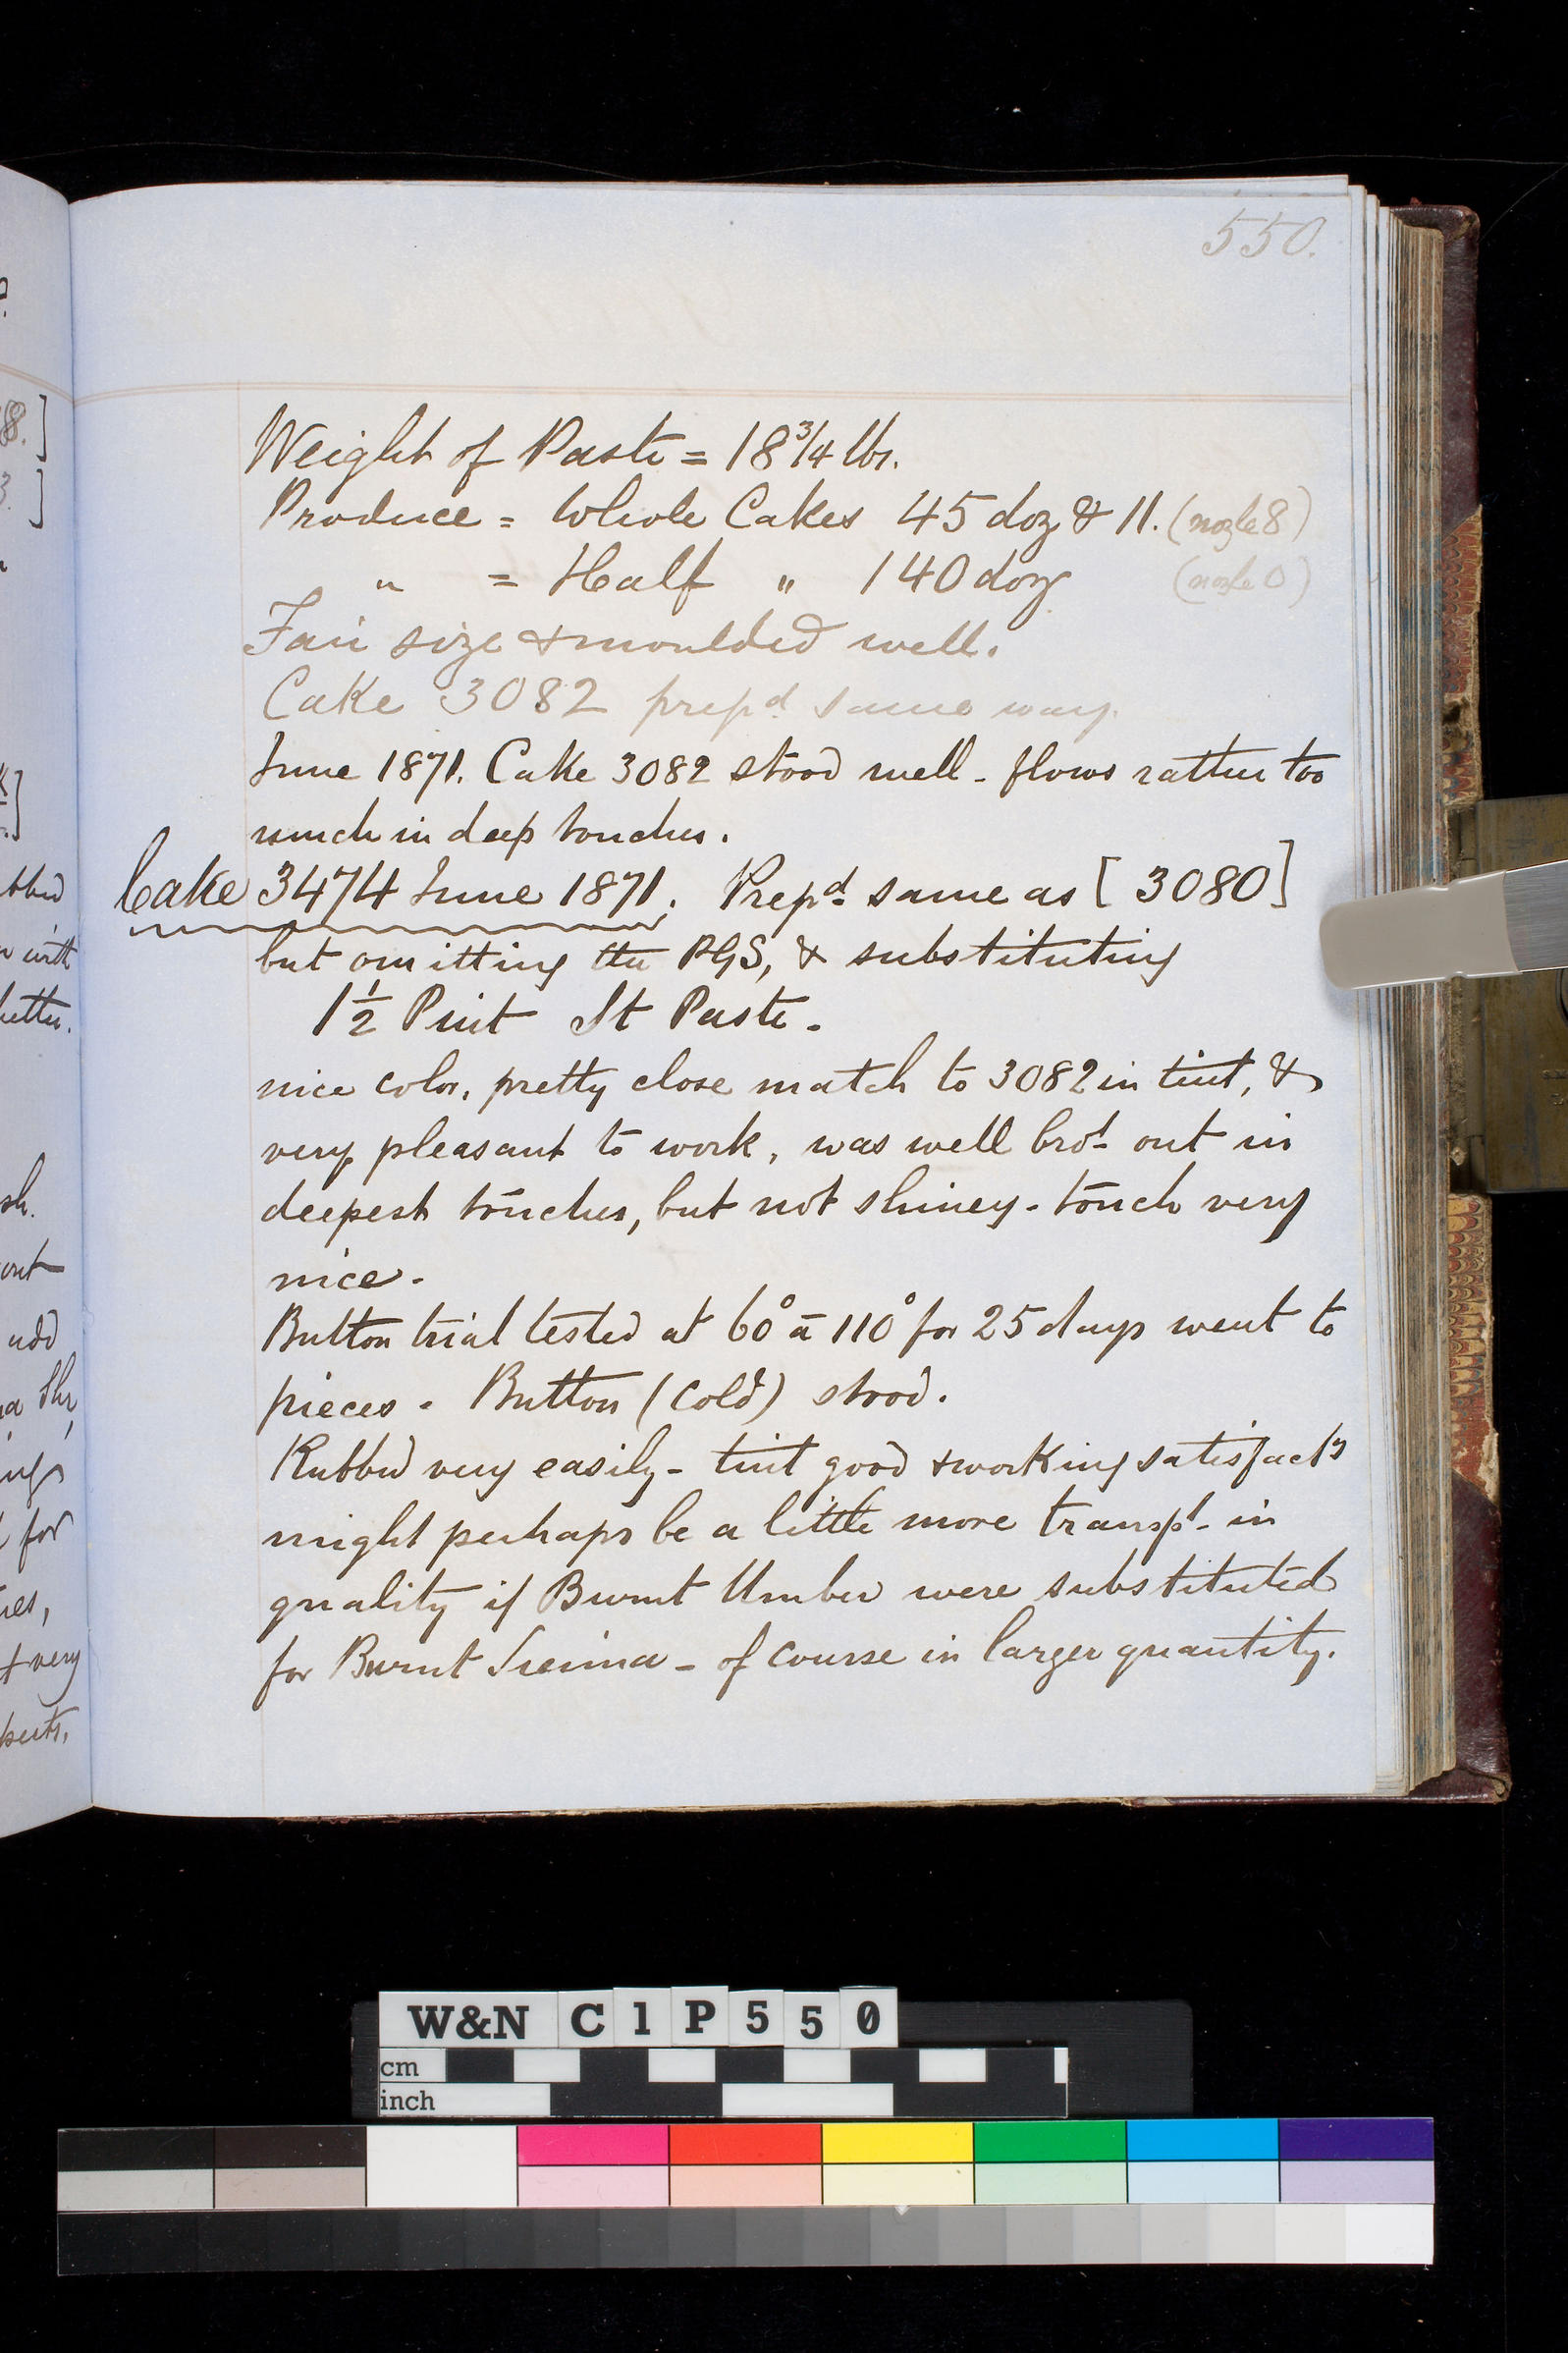 550.
Weight of Paste = 18 3/4 lbs.
Produce = Whole Cakes 45 doz & 11. (nozle 8)
" = Half " 140 doz (nozle 0)
Fair size & moulded well.
Cake 3082 prepd. same way.
June 1871. Cake 3082 stood well - flows rather too
much in deep touches.
Cake 3474 June 1871. Prepd. same as [ 3080 ]
but omitting the PGS, & substituting
1 1/2 Pint St Paste.
nice color, pretty close match to 3082 in tint, &
very pleasant to work, was well brot. out in
deepest touches, but not shiney - touch very
nice.
Button trial tested at 60° a 110° for 25 days went to
pieces. Button (cold) stood.
Rubbed very easily - tint good & working satisfacty
might perhaps be a little more transpt. in
quality if Burnt Umber were substituted
for Burnt Sienna - of course in larger quantity.
W&N C1P550
cm
inch